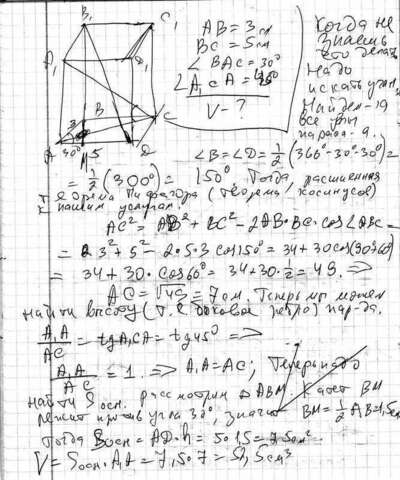 B₁ C₁
A₁ D₁
B C
A M 5 D
3
30°
AB = 3 см
BC = 5 см
∠ BAC = 30°
∠ A₁CA = 45°
V - ?
Когда не
знаешь
что делать
Надо
искать углы.
Найдем
все углы
паралл-а.
∠B = ∠D = 1/2 (360° - 30° - 30°) =
= 1/2 (300°) = 150°. Тогда расширенная
теорема Пифагора (теорема косинусов)
к нашим услугам.
AC² = AB² + BC² - 2AB·BC·cos∠ABC =
= 3² + 5² - 2·5·3 cos150° = 34 + 30cos
= 34 + 30·cos60° = 34 + 30·1/2 = 49. ⇒
AC = √49 = 7 см. Теперь мы можем
найти высоту (т.е. боковое ребро) пар-да.
A₁A/AC = tg A₁CA = tg45° ⇒
A₁A/AC = 1. ⇒ A₁A = AC; Теперь надо
найти Sосн. рассмотрим ▵ ABM Катет BM
лежит против угла 30°, значит BM = 1/2 AB = 1,5см
Тогда Sосн = AD·h = 5·1,5 = 7,5см²
V = Sосн·A₁A = 7,5·7 = 52,5см³